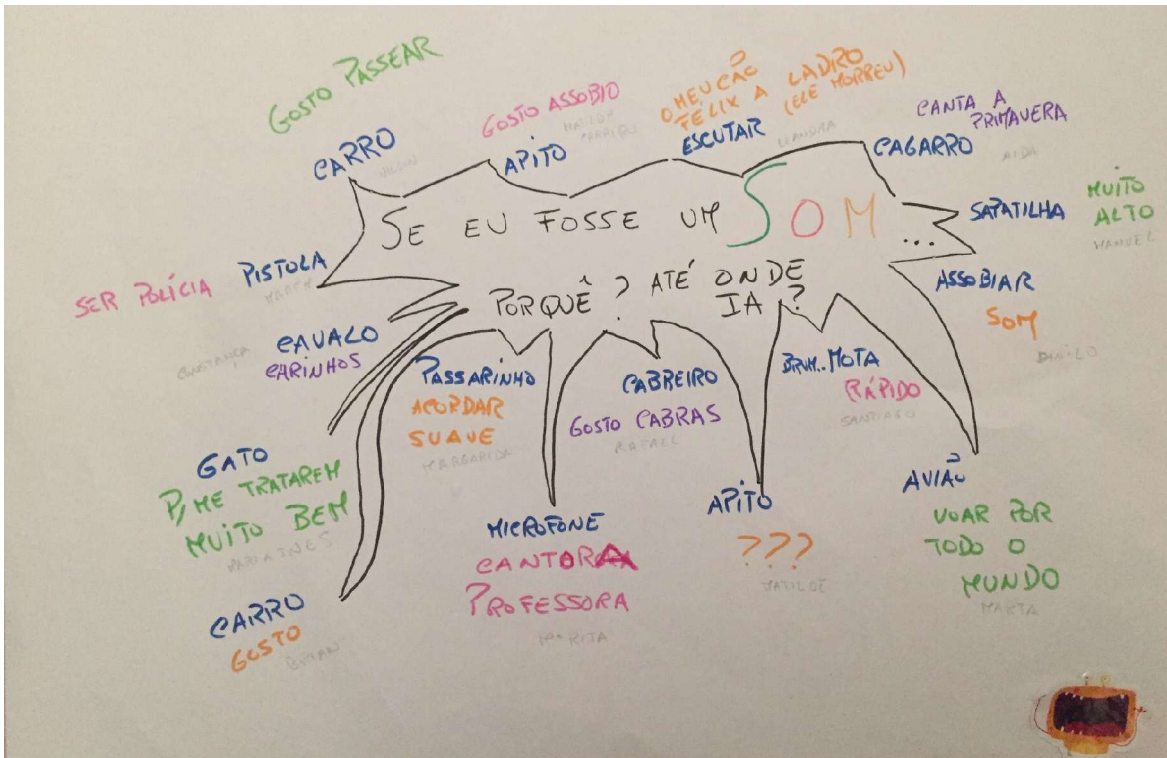 GOSTO PASSEAR
CARRO
GOSTO ASSOBIO
APITO
O MEU CÃO
FÉLIX A LADRO
(ELE MORREU)
ESCUTAR
LEANDRA
CANTA A
PRIMAVERA
CAGARRO
AIDA
SAPATILHA
MUITO
ALTO
MANUEL
SE EU FOSSE UM SOM ...
PORQUÊ? ATÉ ONDE
IA?
SER POLÍCIA
PISTOLA
ASSOBIAR
SOM
CAVALO
CARINHOS
CONSTANÇA
PASSARINHO
ACORDAR
SUAVE
MARGARIDA
CABREIRO
GOSTO CABRAS
RAFAEL
BRUM..MOTA
RÁPIDO
SANTIAGO
GATO
P/ ME TRATAREM
MUITO BEM
MICROFONE
CANTORA
PROFESSORA
APITO
???
MATILDE
AVIÃO
VOAR POR
TODO O
MUNDO
MARTA
CARRO
GOSTO